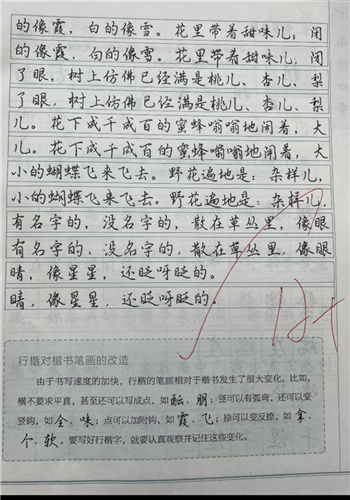 的像霞，白的像雪。花里带着甜味儿，闭
的像霞，白的像雪。花里带着甜味儿，闭
了眼，树上仿佛已经满是桃儿、杏儿、梨
了眼，树上仿佛已经满是桃儿、杏儿、梨
儿。花下成千成百的蜜蜂嗡嗡地闹着，大
儿。花下成千成百的蜜蜂嗡嗡地闹着，大
小的蝴蝶飞来飞去。野花遍地是：杂样儿，
小的蝴蝶飞来飞去。野花遍地是：杂样儿，
有名字的，没名字的，散在草丛里，像眼
有名字的，没名字的，散在草丛里，像眼
睛，像星星，还眨呀眨的。
睛，像星星，还眨呀眨的。
行楷对楷书笔画的改造
由于书写速度的加快，行楷的笔画相对于楷书发生了很大变化。比如，
横不要求平直，甚至还可以写成点，如酝、朋；竖可以有弧弯，还可以变
竖钩，如全、味；点可以加附钩，如霞、飞；捺可以变反捺，如拿、
个、软。要写好行楷字，就要认真观察并记住这些变化。